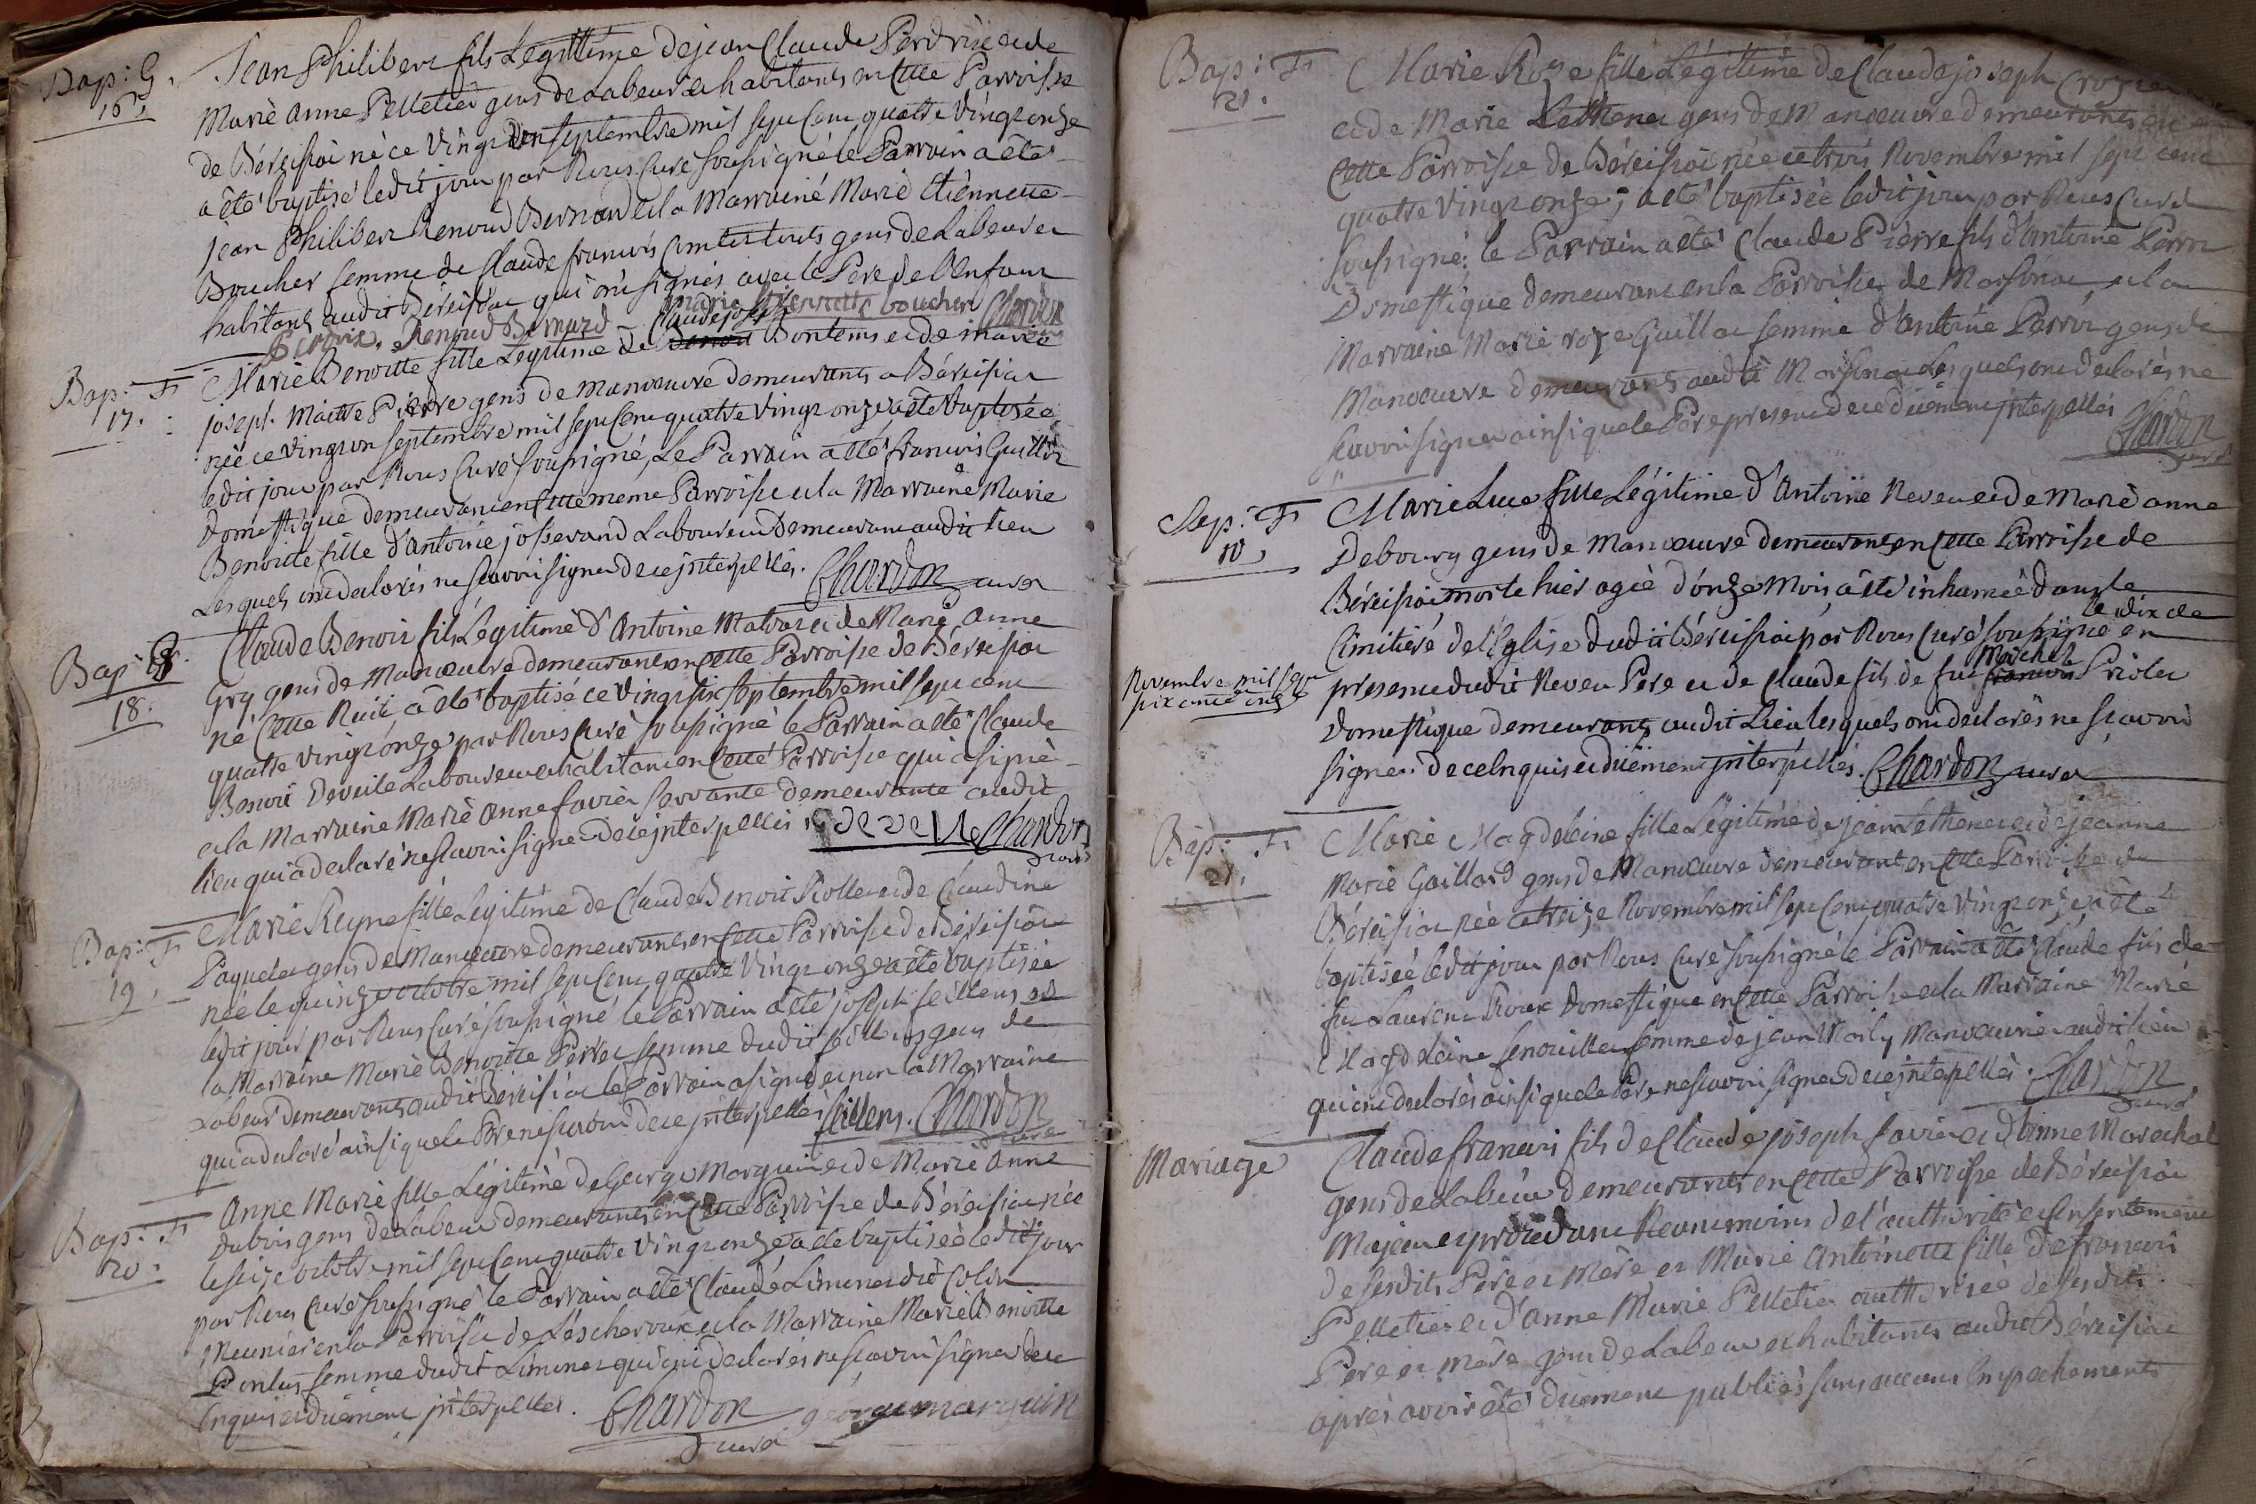 Bap: G.
16.
Jean Philibert fils Légittime de jean Claude Perdrix et de
Marie Anne Pelletier gens de Labeur et habitants en Cette Parroisse
de Béreisiat né ce vingt un septembre mil sept Cent quattre vingt onze
a été baptisé ledit jour par Nous Curé soussigné le Parrain a été
jean Philibert Renoud Bernard et la Marraine Marie Etiennette
Boucher femme de Claude francois Comte touts gens de Labeur et
habitants audit Béreisiat qui ont signés avec le Pere de l'Enfant
Perdrix. Renoud Bernard marie Etiennette boucher Chardon
Bap: F
17.
Marie Benoitte fille Légitime de Claude joseph Bontems et de marie
joseph Maitre Pierre gens de manœuvre demeurants a Béreisiat
née ce vingt un septembre mil sept Cent quattre vingt onze a été baptisée
ledit jour par Nous Curé soussigné, Le Parrain a été francois Guillot
Domestique demeurant en Cette même Parroisse et la Marraine Marie
Benoitte fille d'Antoine josserand Laboureur Demeurant audit lieu
Lesquels ont declarés ne scavoir signer de ce jnterpellés. Chardon curé
Bap: G.
18.
Claude Benoit fils Légitime d'Antoine Matras et de Marie Anne
Gry gens de Manœuvre demeurants en Cette Parroisse de Béreisiat
né Cette Nuit, a été baptisé ce vingt six septembre mil sept cent
quattre vingt onze par Nous Curé soussigné le Parrain a été Claude
Benoit Deveile Laboureur et habitant en Cette Parroisse qui a signé
et la Marraine Marie Anne favier servante demeurante audit
lieu qui a declaré ne scavoir signer de ce jnterpellés deveile Chardon
curé
Bap: F
19.
Marie Reyne fille Légitime de Claude Benoit Piollet et de Claudine
Paquelet gens de Manœuvre demeurants en Cette Parroisse de Béreisiat
née le quinze octobre mil sept Cent quattre vingt onze a été baptisée
ledit jour par Nous Curé soussigné le Parrain a été joseph feillens et
la Marraine Marie Benoitte Perret femme dudit feillens gens de
Labeur demeurants audit Béreisiat le Parrain a signé et non la Marraine
qui a declaré ainsi que le Pere ne scavoir de ce jnterpellés feillens. Chardon
curé
Bap: F
20.
Anne Marie fille Légitime de George Marguin et de Marie Anne
Dubois gens de Labeur demeurants en Cette Parroisse de Béreisiat née
le seize octobre mil sept Cent quattre vingt onze a été baptisée ledit jour
par Nous Curé soussigné le Parrain a été Claude Liminet dit Colin
Meunier en la Parroisse de Lescheroux et la Marraine Marie Benoitte
Ponlus femme dudit Liminet qui ont declarés ne scavoir signer de ce
Enquis et duëment jnterpellés. Chardon george marguin
curé
Bap: F
21.
Marie Roze fille Légitime de Claude joseph
et de Marie Lethenet gens de Manœuvre demeurants en
Cette Parroisse de Béreisiat née ce trois Novembre mil sept cent
quatre vingt onze, a été baptisée ledit jour par Nous Curé
soussigné; le Parrain a été Claude Pierre fils d'antoine Perrot
Domestique demeurant en la Parroisse de Marsonat et la
Marraine Marie roze Guillot femme d'antoine Perrot gens de
Manœuvre demeurants audit Marsonat Lesquels ont declarés ne
scavoir signer ainsi que le Pere present de ce duëment jnterpellés
Chardon
curé
Sep: F
10.
Marie Luce fille Légitime d'Antoine Neveu et de Marie anne
Debourg gens de Manœuvre demeurants en Cette Parroisse de
Béreisiat morte hier agée d'onze Mois a été inhumée dans le
Cimitiere de l'Eglise dudit Béreisiat par Nous Curé soussigné le dix de en
Novembre mil sept
presence dudit Neveu Pere et de Claude fils de feu Michel Priolet
Domestique demeurants audit Lieu lesquels ont declarés ne scavoir
signer de ce Enquis et duëment jnterpellés. Chardon curé
Bap: F
21.
Marie Magdeleine fille Légitime de jean Lethenet et de jeanne
Marie Gaillard gens de Manœuvre demeurants en Cette Parroisse de
Béreisiat née ce treize Novembre mil sept Cent quatre vingt onze a été
baptisée ledit jour par Nous Curé soussigné le Parrain a été Claude fils de
feu Laurent Roux Domestique en Cette Parroisse et la Marraine Marie
Magdeleine fenouillet femme de jean Marly Manœuvrier audit lieu
qui ont declarés ainsi que le Pere ne scavoir signer de ce jnterpellés. Chardon
curé
Mariage
Claude francois fils de Claude joseph favier et d'anne Marechal
gens de Labeur demeurants en Cette Parroisse de Béreisiat
Majeur et procedant Neanmoins de l'authorité et Consentement
de sesdits Pere et Mere et Marie Antoinette fille de francois
Pelletier et d'Anne Marie Pelletier authorisée de sesdits
Pere et mere gens de Labeur et habitants audit Béreisiat
après avoir été duëment publiés sans aucuns Empechements